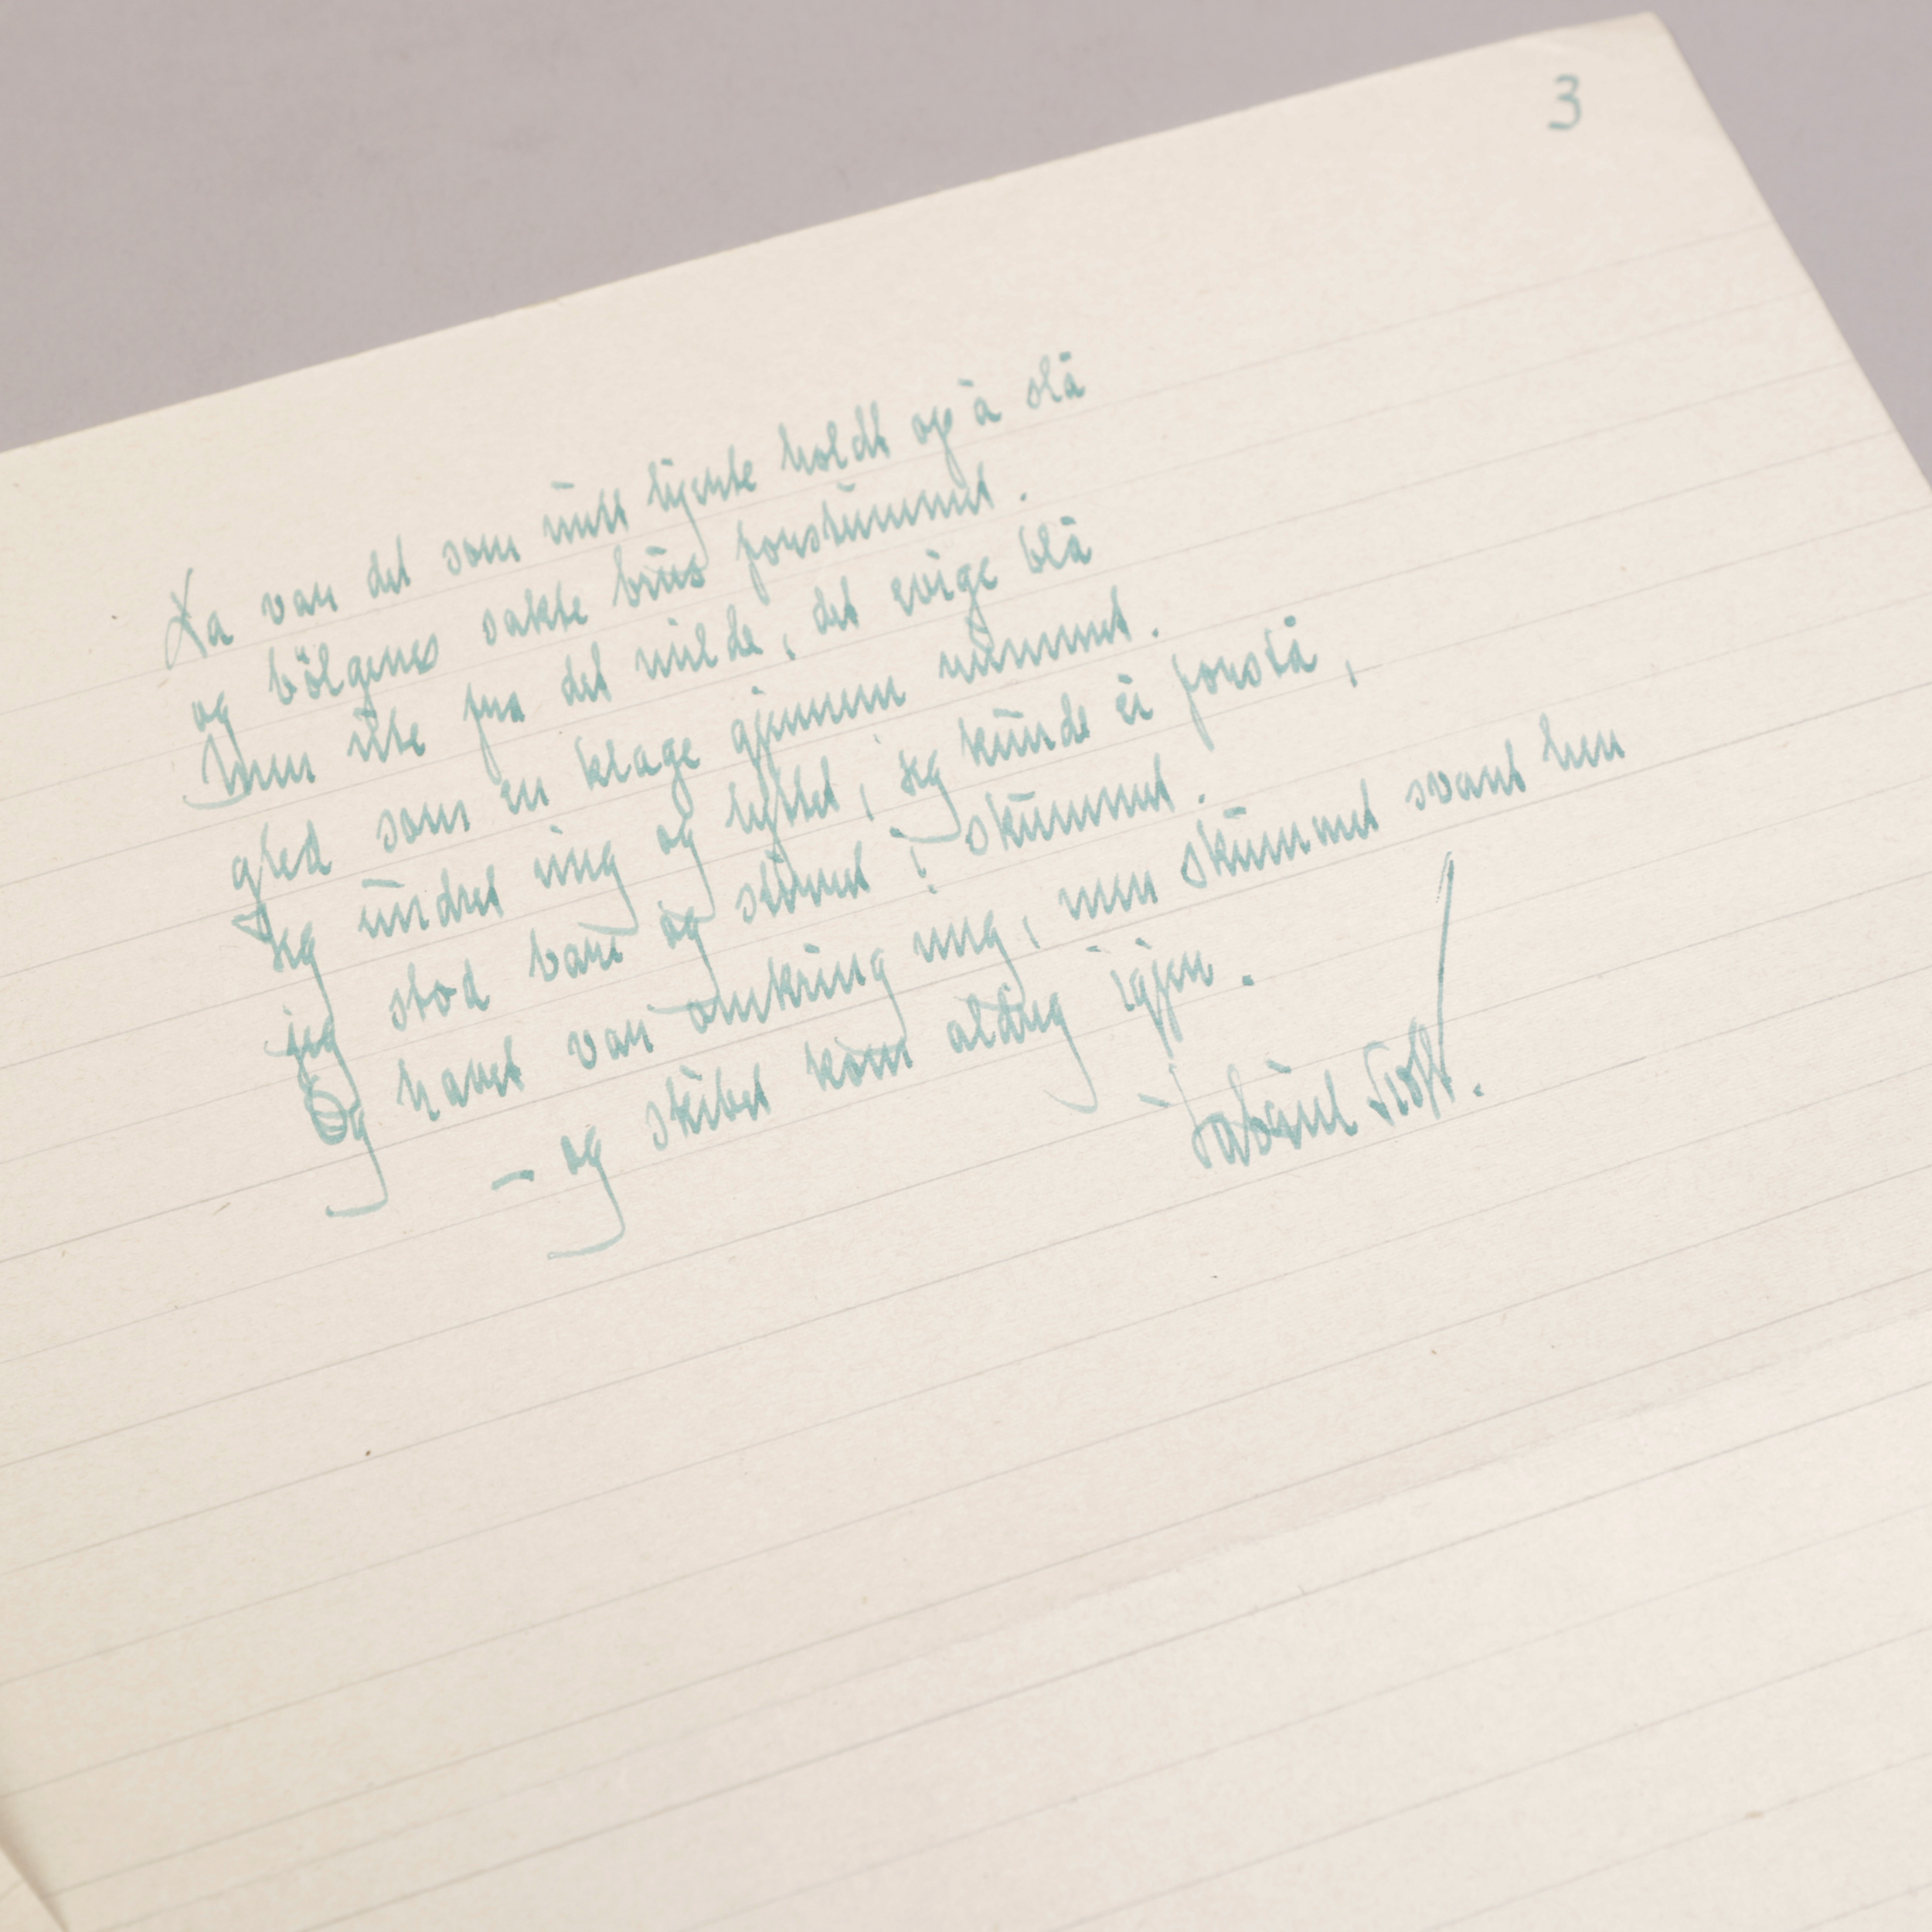 3
Da var det som mitt hjerte holdt op å slå
og bölgenes sakte brus forstummet.
Men ute fra det milde, det evige blå
gled som en klage gjennem rummet.
Jeg undret mig og lyttet, jeg kunde ei forstå,
jeg stod bare og stirret i skummet.
Og havet var omkring mig, men skummet svant hen
- og skibet kom aldrig igjen.
Gabriel Scott.